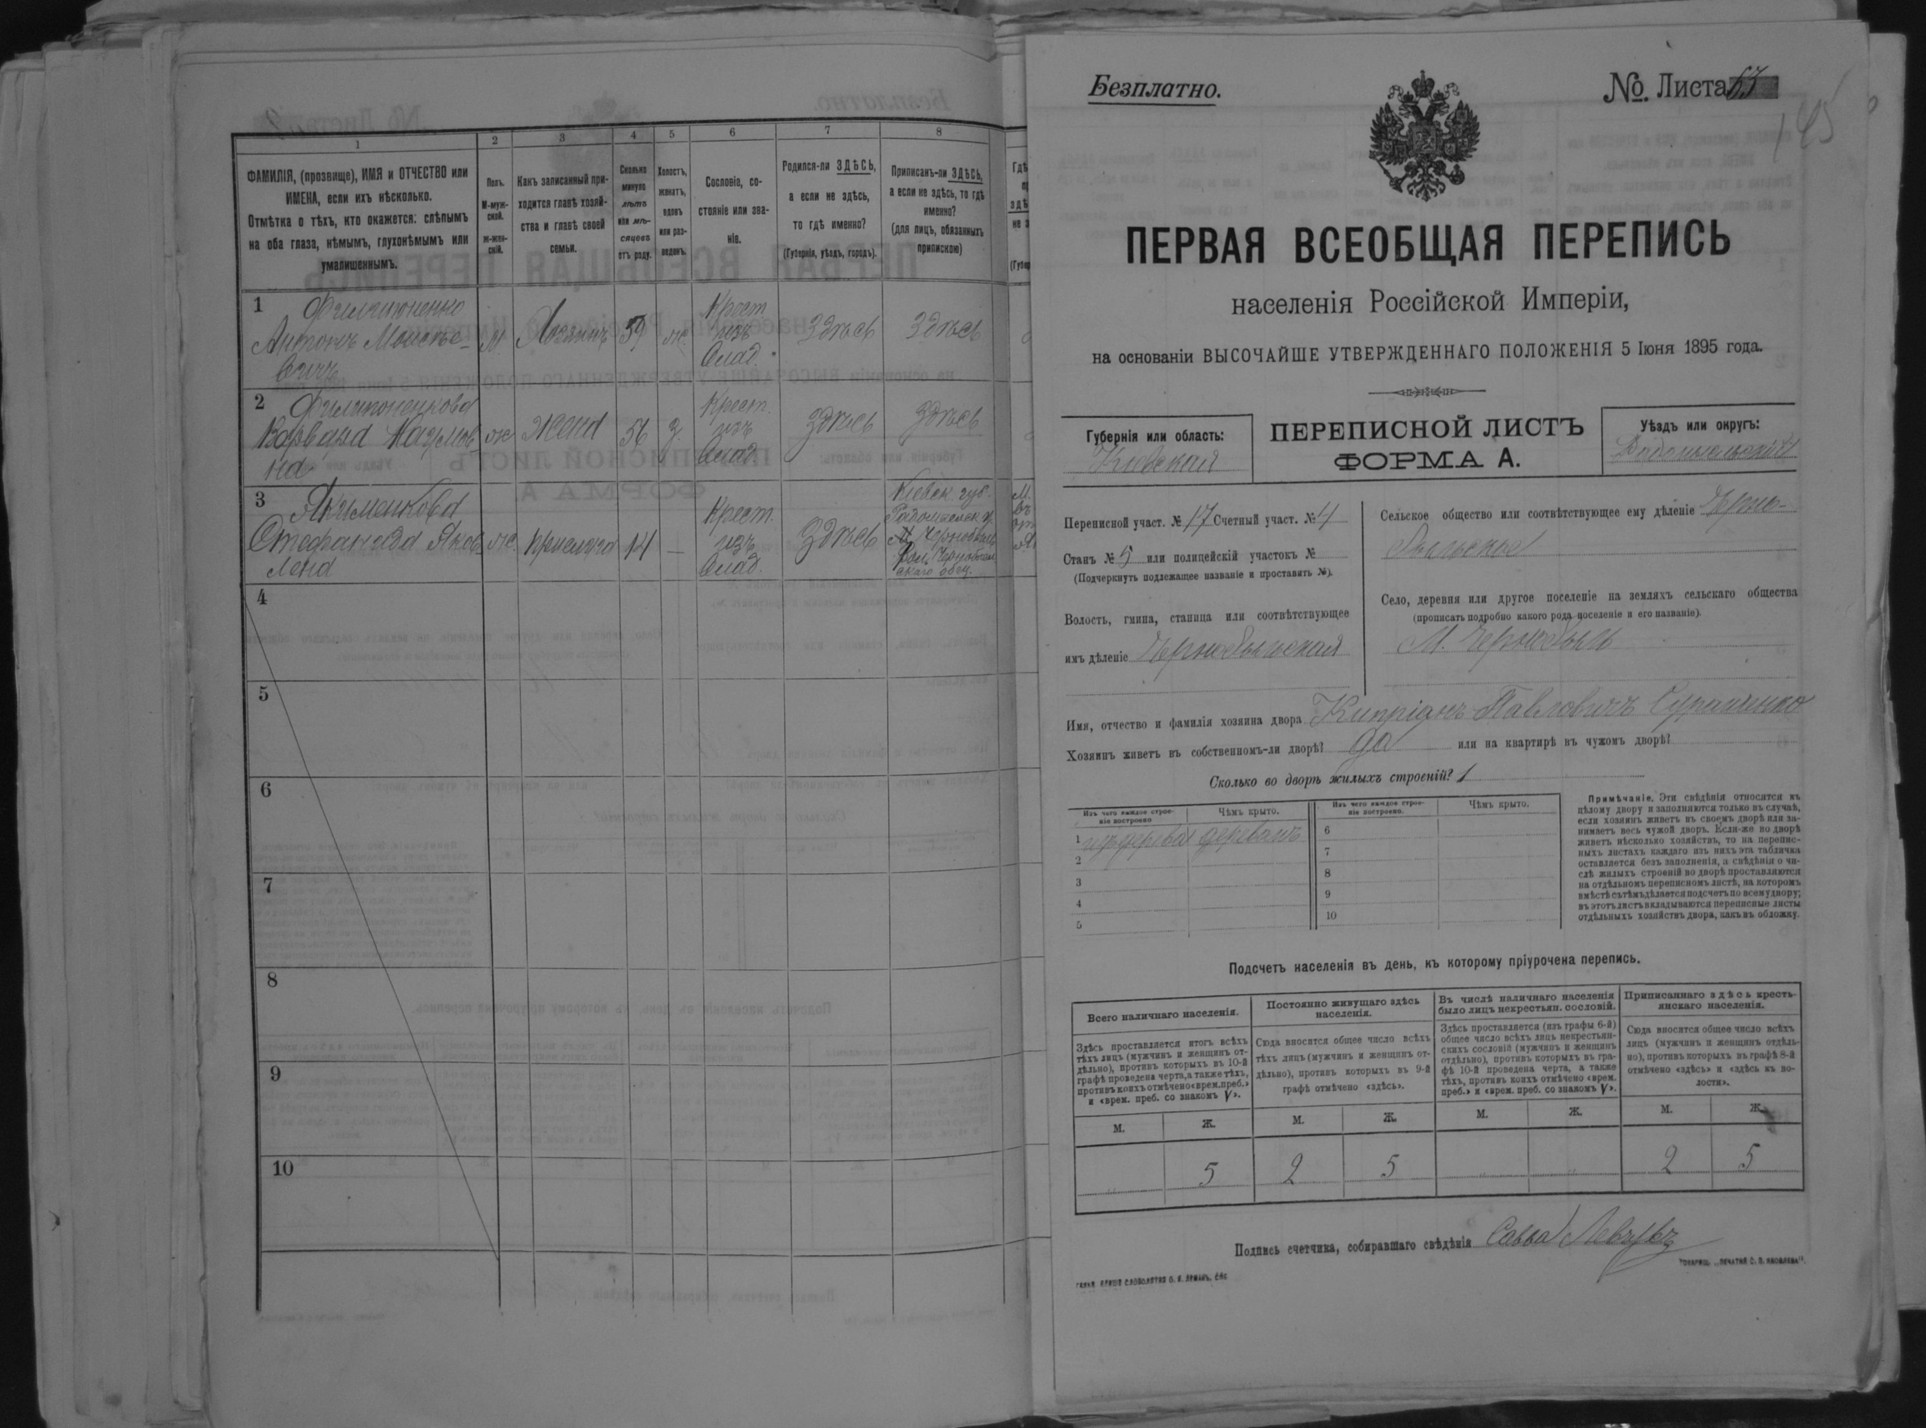 1
2
3
4
5
6
7
8
ФАМИЛІЯ, (прозвище), ИМЯ и ОТЧЕСТВО или
ИМЕНА, если ихъ нѣсколько.
Отмѣтка о тѣхъ, кто окажется: слѣпымъ
на оба глаза, нѣмымъ, глухонѣмымъ или
умалишеннымъ.
Полъ.
М-муж-
ской.
ж-жен-
скій.
Какъ записанный при-
ходится главѣ хозяй-
ства и главѣ своей
семьи.
Сколько
минуло
лѣтъ
или мѣ-
сяцевъ
отъ роду.
Холостъ,
женатъ,
вдовъ
или раз-
веденъ.
Сословіе, со-
стояніе или зва-
ніе.
Родился-ли ЗДѢСЬ,
а если не здѣсь,
то гдѣ именно?
(Губернія, уѣздъ, городъ).
Приписанъ-ли ЗДѢСЬ,
а если не здѣсь, то гдѣ
именно?
(для лицъ, обязанныхъ
припискою)
1
Антонъ
м
Хозяинъ
59
Крест
изъ
Влад.
Здѣсь
Здѣсь
2
Варвара Наумов
на
ж
жена
56
з.
Крест.
изъ
Влад.
Здѣсь
Здѣсь
3 Якименкова
Стефанида Яков
левна
ж
прислуга
14
—
Крест.
изъ
Влад.
Здѣсь
Кіевск. губ.
Радомысльск. у.
4
5
6
7
8
9
10
Безплатно.
№ Листа 63
145
ПЕРВАЯ ВСЕОБЩАЯ ПЕРЕПИСЬ
населенія Россійской Имперіи,
на основаніи ВЫСОЧАЙШЕ УТВЕРЖДЕННАГО ПОЛОЖЕНІЯ 5 Іюня 1895 года.
Губернія или область:
Кіевская
ПЕРЕПИСНОЙ ЛИСТЪ
ФОРМА А.
Уѣздъ или округъ:
Радомысльскій
Переписной участ. № 17 Счетный участ. № 4
Станъ № 5 или полицейскій участокъ №
(Подчеркнуть подлежащее названіе и проставить №).
Волость, гмина, станица или соотвѣтствующее
имъ дѣленіе Чернобыльская
Сельское общество или соотвѣтствующее ему дѣленіе Черно-
быльское
Село, деревня или другое поселеніе на земляхъ сельскаго общества
(прописать подробно какого рода поселеніе и его названіе).
М. Чернобыль
Имя, отчество и фамилія хозяина двора Кипріанъ Павловичъ
Хозяинъ живетъ въ собственномъ-ли дворѣ? да или на квартирѣ въ чужомъ дворѣ?
Сколько во дворѣ жилыхъ строеній? 1
Изъ чего каждое строе-
ніе построено
Чѣмъ крыто.
1 изъ дерева деревомъ
2
3
4
5
Изъ чего каждое строе-
ніе построено.
Чѣмъ крыто.
6
7
8
9
10
Примѣчаніе. Эти свѣдѣнія относятся къ
цѣлому двору и заполняются только въ случаѣ,
если хозяинъ живетъ въ своемъ дворѣ или за-
нимаетъ весь чужой дворъ. Если-же во дворѣ
живетъ нѣсколько хозяйствъ, то на перепис-
ныхъ листахъ каждаго изъ нихъ эта табличка
оставляется безъ заполненія, а свѣдѣнія о чи-
слѣ жилыхъ строеній во дворѣ проставляются
на отдѣльномъ переписномъ листѣ, на которомъ
вмѣстѣ съ тѣмъ дѣлается подсчетъ по всему двору;
въ этотъ листъ вкладываются переписные листы
отдѣльныхъ хозяйствъ двора, какъ въ обложку.
Подсчетъ населенія въ день, къ которому пріурочена перепись.
Всего наличнаго населенія.
Постоянно живущаго здѣсь
населенія.
Въ числѣ наличнаго населенія
было лицъ некрестьян. сословій.
Приписаннаго здѣсь кресть-
янскаго населенія.
Здѣсь проставляется итогъ всѣхъ
тѣхъ лицъ (мужчинъ и женщинъ от-
дѣльно), противъ которыхъ въ 10-й
графѣ проведена черта, а также тѣхъ,
противъ коихъ отмѣчено «врем. преб.»
и «врем. преб. со знакомъ V».
Сюда вносится общее число всѣхъ
тѣхъ лицъ (мужчинъ и женщинъ от-
дѣльно), противъ которыхъ въ 9-й
графѣ отмѣчено «здѣсь».
Здѣсь проставляется (изъ графы 6-й)
общее число всѣхъ лицъ некрестьян-
скихъ сословій (мужчинъ и женщинъ
отдѣльно), противъ которыхъ въ гра-
фѣ 10-й проведена черта, а также
тѣхъ, противъ коихъ отмѣчено «врем.
преб.» и «врем. преб. со знакомъ V».
Сюда вносится общее число всѣхъ
лицъ (мужчинъ и женщинъ отдѣль-
но), противъ которыхъ въ графѣ 8-й
отмѣчено «здѣсь» и «здѣсь въ во-
лости».
М. Ж. М. Ж. М. Ж. М. Ж.
„ 5 2 5 „ „ 2 5
Подпись счетчика, собиравшаго свѣдѣнія Савва